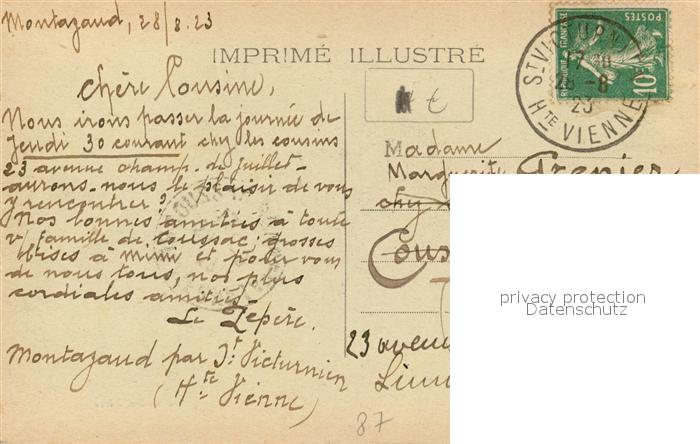 Montazaud, 28/8.23
IMPRIMÉ ILLUSTRÉ
chère Cousine,
Nous irons passer la journée de
Jeudi 30 courant chez les cousins
23 avenue champ. de juillet.
aurons-nous le plaisir de vous
y rencontrer?
Nos bonnes amitiés à toute
v/ famille de Coussac, grosses
bises à Mimi et pour vous
de nous tous, nos plus
cordiales amitiés
Le
Montazaud par St Victurnien
(Hte Vienne)
REPUBLIQUE FRANÇAISE
POSTES
10
ST VICTURNIEN
28 -8
23
HTE VIENNE
€
Madame
Marguerite Grenier
chez
Cous
23 avenu
Lim
87
privacy protection
Datenschutz